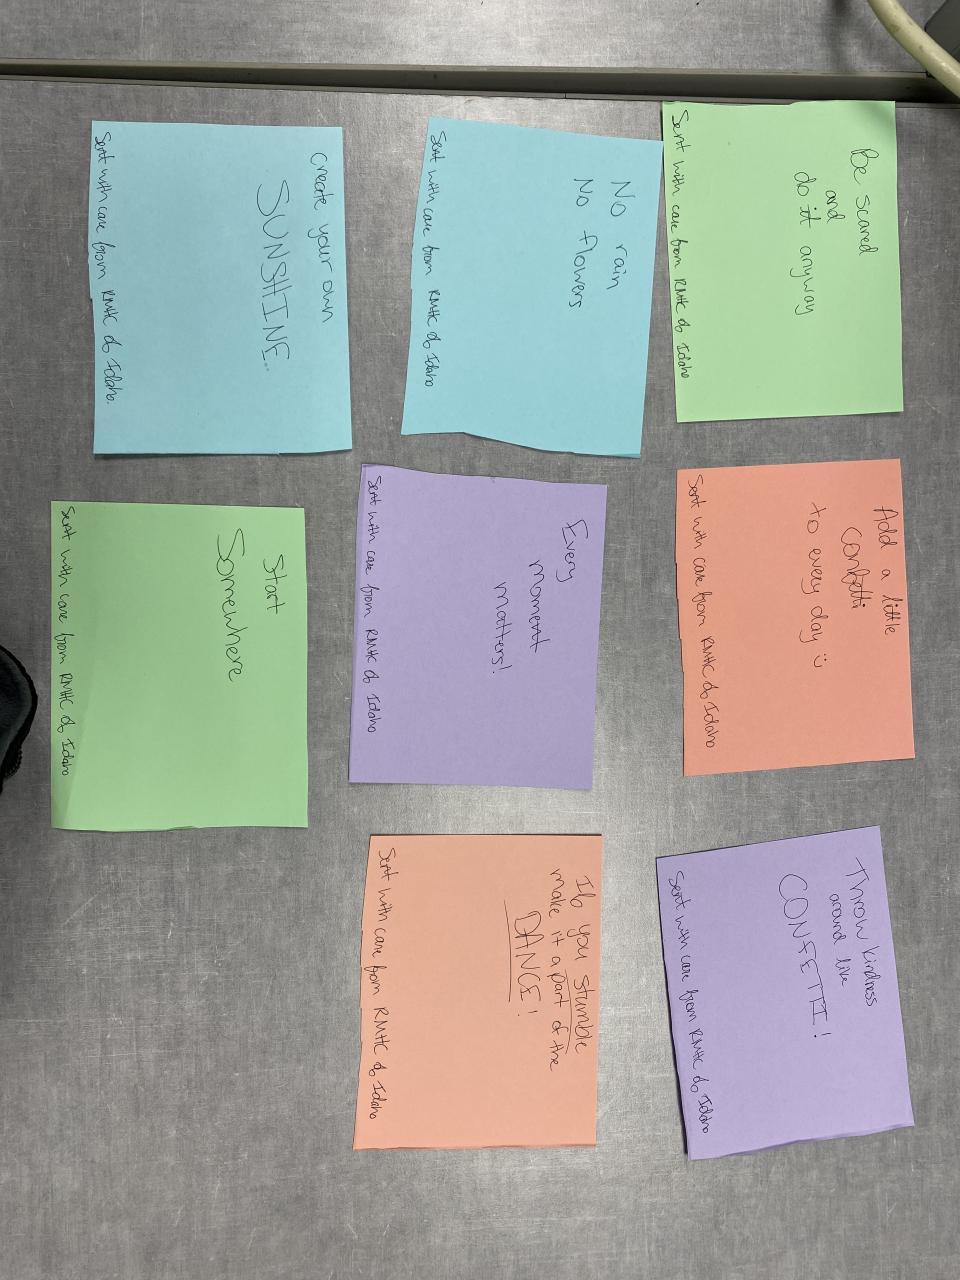 Be scared
and
do it anyway
Sent with care from RMHC of Idaho
Add a little
confetti
to every day :)
Sent with care from RMHC of Idaho
Throw kindness
around like
CONFETTI!
Sent with care from RMHC of Idaho
No rain
No flowers
Sent with care from RMHC of Idaho
Every
moment
matters!
Sent with care from RMHC of Idaho
If you stumble
make it a part of the
DANCE!
Sent with care from RMHC of Idaho
Create your own
SUNSHINE...
Sent with care from RMHC of Idaho.
Start
Somewhere
Sent with care from RMHC of Idaho